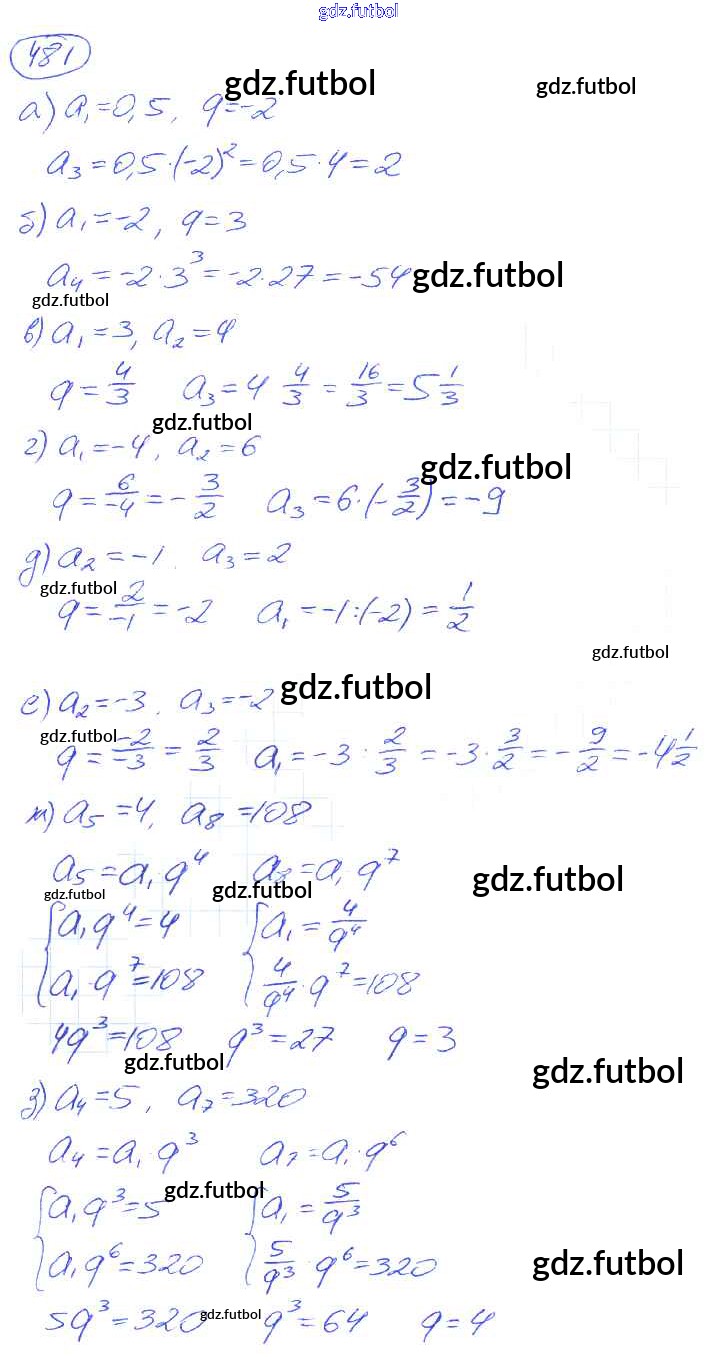 gdz.futbol
481
gdz.futbol gdz.futbol
а) a₁=0,5, q=-2
a₃=0,5·(-2)²=0,5·4=2
б) a₁=-2, q=3
a₄=-2·3³=-2·27=-54 gdz.futbol
gdz.futbol
в) a₁=3, a₂=4
q=4/3 a₃=4 4/3=16/3=5 1/3
gdz.futbol
г) a₁=-4, a₂=6
gdz.futbol
q=6/-4=-3/2 a₃=6·(-3/2)=-9
д) a₂=-1, a₃=2
gdz.futbol
q=2/-1=-2 a₁=-1:(-2)=1/2
gdz.futbol
е) a₂=-3, a₃=-2 gdz.futbol
gdz.futbol
q=-2/-3=2/3 a₁=-3:2/3=-3·3/2=-9/2=-4 1/2
ж) a₅=4, a₈=108
a₅=a₁q⁴ a₈=a₁q⁷ gdz.futbol
gdz.futbol gdz.futbol
{a₁q⁴=4 {a₁=4/q⁴
{a₁·q⁷=108 {4/q⁴·q⁷=108
4q³=108 q³=27 q=3
gdz.futbol gdz.futbol
з) a₄=5, a₇=320
a₄=a₁·q³ a₇=a₁·q⁶
gdz.futbol
{a₁q³=5 {a₁=5/q³
{a₁q⁶=320 {5/q³·q⁶=320 gdz.futbol
5q³=320 gdz.futbol q³=64 q=4